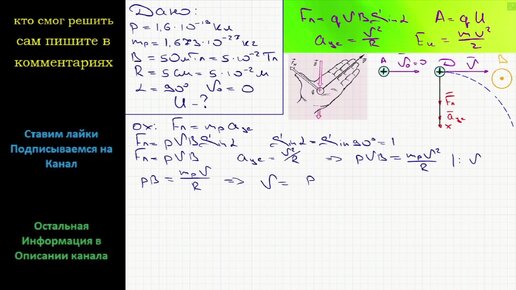 кто смог решить
сам пишите в
комментариях
Ставим лайки
Подписываемся на
Канал
Остальная
Информация в
Описании канала
Дано:
p = 1,6 · 10⁻¹⁹ Кл
mp = 1,673 · 10⁻²⁷ кг
B = 50 мТл = 5 · 10⁻² Тл
R = 5 см = 5 · 10⁻² м
α = 90° V₀ = 0
U - ?
Fл = qVB Sin α A = qU
aцс = V²/R Eк = mV²/2
A V₀ = 0 V B
Fл
aцс
x
ox: Fл = mp aцс
Fл = pVB Sin α Sin α = Sin 90° = 1
Fл = pVB aцс = V²/R ⇒ pVB = mpV²/R |: V
pB = mpV/R ⇒ V = p